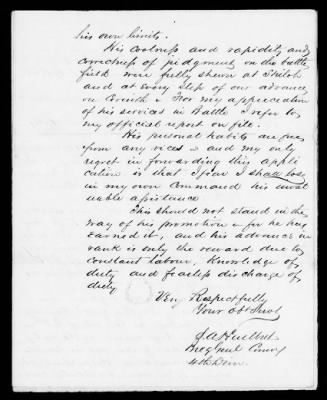 his own limits.
His coolness and rapidity and
correctness of judgment on the battle
field were fully shewn at Shiloh
and at every step of our advance
on Corinth & For my appreciation
of his services in Battle I refer to
my official report on file.
His personal habits are free
from any vices & and my only
regret in forwarding this appli
cation is that I fear I shall lose
in my own command his inval
uable assistance
This should not stand in the
way of his promotion & for he has
earned it, and his advance in
rank is only the reward due to
constant labour, knowledge of
duty and fearless discharge of
duty
Very Respectfully
Your Obt Servt
S. A. Hurlbut
Brig Genl Comg
4th Divn.